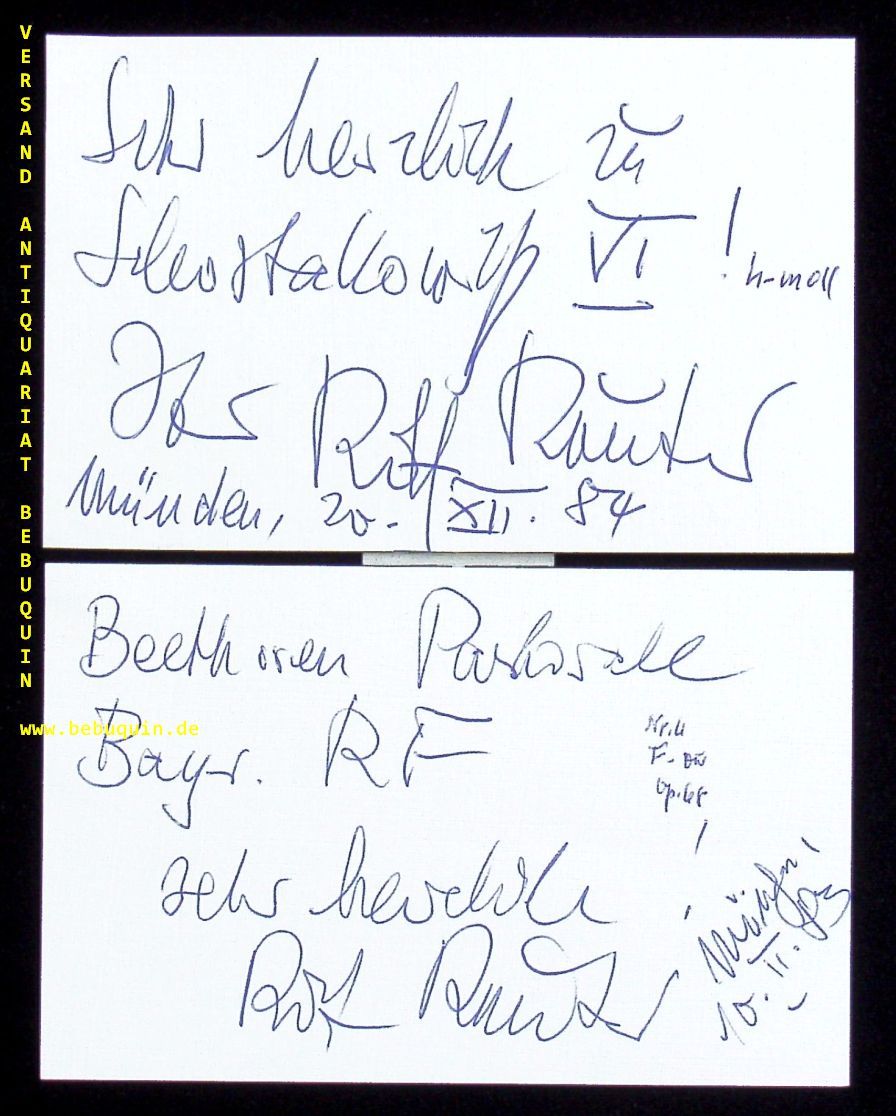 VERSAND ANTIQUARIAT BEBUQUIN
www.bebuquin.de
Sehr herzlich zu
Schostakowitsch VI !
h-moll
Ihr Rolf Reuter
München, 20. XII. 84
Beethoven Pastorale
Bayr. RF
F-Dur
Op. 68
sehr herzlich !
Rolf Reuter
München,
10. II.